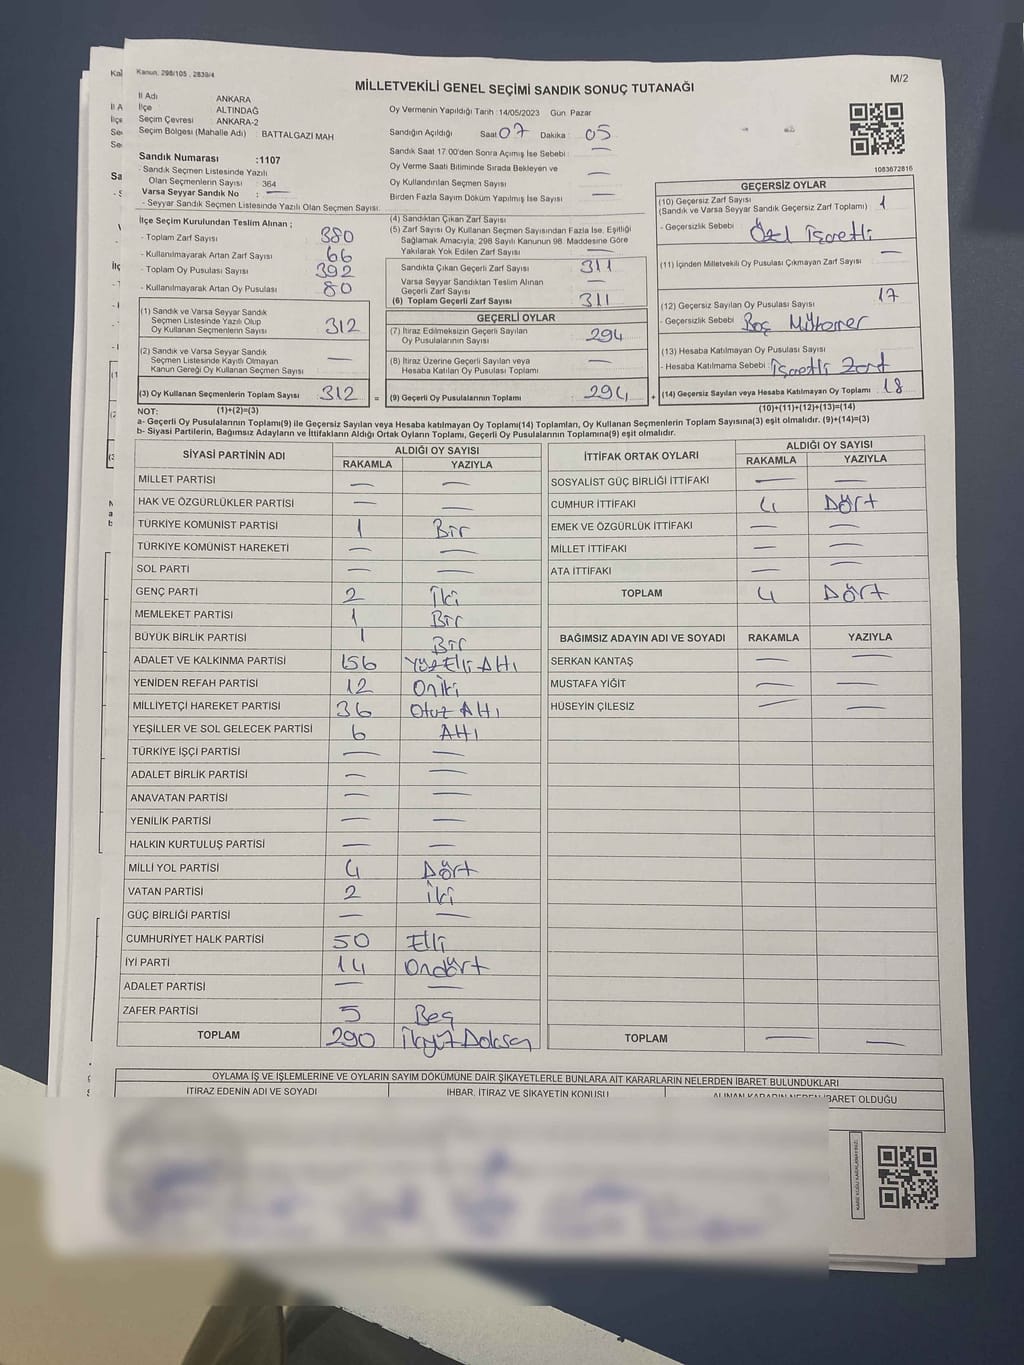 Kanun: 298/105 , 2839/4
M/2
MİLLETVEKİLİ GENEL SEÇİMİ SANDIK SONUÇ TUTANAĞI
İl Adı ANKARA
İlçe ALTINDAĞ
Seçim Çevresi ANKARA-2
Seçim Bölgesi (Mahalle Adı) : BATTALGAZI MAH
Sandık Numarası :1107
- Sandık Seçmen Listesinde Yazılı
Olan Seçmenlerin Sayısı : 364
Varsa Seyyar Sandık No : —
- Seyyar Sandık Seçmen Listesinde Yazılı Olan Seçmen Sayısı:
Oy Vermenin Yapıldığı Tarih :14/05/2023 Gün Pazar
Sandığın Açıldığı Saat 07 Dakika : 05
Sandık Saat 17:00'den Sonra Açımış İse Sebebi : —
Oy Verme Saati Bitiminde Sırada Bekleyen ve
Oy Kullandırılan Seçmen Sayısı —
Birden Fazla Sayım Döküm Yapılmış İse Sayısı —
1083672816
İlçe Seçim Kurulundan Teslim Alınan ;
- Toplam Zarf Sayısı 380
- Kullanılmayarak Artan Zarf Sayısı 66
- Toplam Oy Pusulası Sayısı 392
- Kullanılmayarak Artan Oy Pusulası 80
(1) Sandık ve Varsa Seyyar Sandık
Seçmen Listesinde Yazılı Olup
Oy Kullanan Seçmenlerin Sayısı 312
(2) Sandık ve Varsa Seyyar Sandık
Seçmen Listesinde Kayıtlı Olmayan
Kanun Gereği Oy Kullanan Seçmen Sayısı —
(3) Oy Kullanan Seçmenlerin Toplam Sayısı 312 =
(4) Sandıktan Çıkan Zarf Sayısı
(5) Zarf Sayısı Oy Kullanan Seçmen Sayısından Fazla İse, Eşitliği
Sağlamak Amacıyla; 298 Sayılı Kanunun 98. Maddesine Göre
Yakılarak Yok Edilen Zarf Sayısı —
Sandıkta Çıkan Geçerli Zarf Sayısı 311
Varsa Seyyar Sandıktan Teslim Alınan
Geçerli Zarf Sayısı
(6) Toplam Geçerli Zarf Sayısı 311
GEÇERLİ OYLAR
(7) İtiraz Edilmeksizin Geçerli Sayılan
Oy Pusulalarının Sayısı 294
(8) İtiraz Üzerine Geçerli Sayılan veya
Hesaba Katılan Oy Pusulası Toplamı —
(9) Geçerli Oy Pusulalarının Toplamı 294 +
GEÇERSİZ OYLAR
(10) Geçersiz Zarf Sayısı
(Sandık ve Varsa Seyyar Sandık Geçersiz Zarf Toplamı) 1
- Geçersizlik Sebebi Özel İşaretli
(11) İçinden Milletvekili Oy Pusulası Çıkmayan Zarf Sayısı —
(12) Geçersiz Sayılan Oy Pusulası Sayısı 17
- Geçersizlik Sebebi Boş Mükerrer
(13) Hesaba Katılmayan Oy Pusulası Sayısı
- Hesaba Katılmama Sebebi : İşaretli Zarf
(14) Geçersiz Sayılan veya Hesaba Katılmayan Oy Toplamı 18
NOT: (1)+(2)=(3) (10)+(11)+(12)+(13)=(14)
a- Geçerli Oy Pusulasının Toplamı(9) ile Geçersiz Sayılan veya Hesaba katılmayan Oy Toplamı(14) Toplamları, Oy Kullanan Seçmenlerin Toplam Sayısına(3) eşit olmalıdır. (9)+(14)=(3)
b- Siyasi Partilerin, Bağımsız Adayların ve İttifakların Aldığı Ortak Oyların Toplamı, Geçerli Oy Pusulalarının Toplamına(9) eşit olmalıdır.
SİYASİ PARTİNİN ADI ALDIĞI OY SAYISI
RAKAMLA YAZIYLA
MİLLET PARTİSİ — —
HAK VE ÖZGÜRLÜKLER PARTİSİ — —
TÜRKİYE KOMÜNİST PARTİSİ 1 Bir
TÜRKİYE KOMÜNİST HAREKETİ — —
SOL PARTİ — —
GENÇ PARTİ 2 İki
MEMLEKET PARTİSİ 1 Bir
BÜYÜK BİRLİK PARTİSİ 1 Bir
ADALET VE KALKINMA PARTİSİ 156 YüzElli Altı
YENİDEN REFAH PARTİSİ 12 Oniki
MİLLİYETÇİ HAREKET PARTİSİ 36 Otuz Altı
YEŞİLLER VE SOL GELECEK PARTİSİ 6 Altı
TÜRKİYE İŞÇİ PARTİSİ — —
ADALET BİRLİK PARTİSİ — —
ANAVATAN PARTİSİ — —
YENİLİK PARTİSİ — —
HALKIN KURTULUŞ PARTİSİ — —
MİLLİ YOL PARTİSİ 4 Dört
VATAN PARTİSİ 2 İki
GÜÇ BİRLİĞİ PARTİSİ — —
CUMHURİYET HALK PARTİSİ 50 Elli
İYİ PARTİ 14 Ondört
ADALET PARTİSİ — —
ZAFER PARTİSİ 5 Beş
TOPLAM 290 İkiyüz Doksan
İTTİFAK ORTAK OYLARI ALDIĞI OY SAYISI
RAKAMLA YAZIYLA
SOSYALİST GÜÇ BİRLİĞİ İTTİFAKI — —
CUMHUR İTTİFAKI 4 Dört
EMEK VE ÖZGÜRLÜK İTTİFAKI — —
MİLLET İTTİFAKI — —
ATA İTTİFAKI — —
TOPLAM 4 Dört
BAĞIMSIZ ADAYIN ADI VE SOYADI RAKAMLA YAZIYLA
SERKAN KANTAŞ — —
MUSTAFA YİĞİT — —
HÜSEYİN ÇİLESİZ — —
TOPLAM — —
OYLAMA İŞ VE İŞLEMLERİNE VE OYLARIN SAYIM DÖKÜMÜNE DAİR ŞİKAYETLERLE BUNLARA AİT KARARLARIN NELERDEN İBARET BULUNDUKLARI
İTİRAZ EDENİN ADI VE SOYADI İHBAR, İTİRAZ VE ŞİKAYETİN KONUSU ALINAN KARARIN NEDEN İBARET OLDUĞU